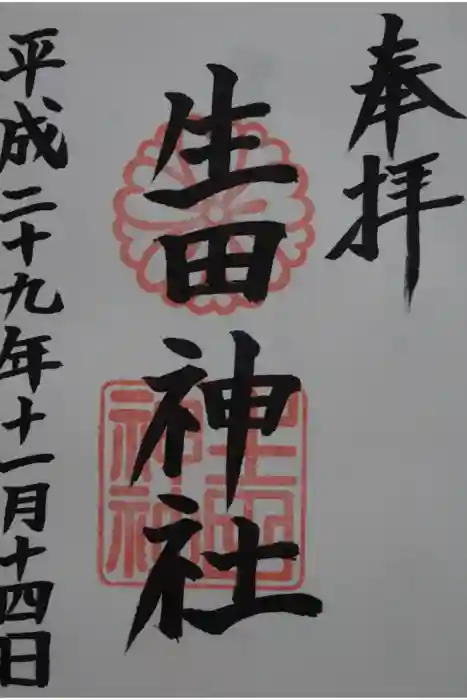 奉拝
生田神社
生田神社
平成二十九年十一月十四日